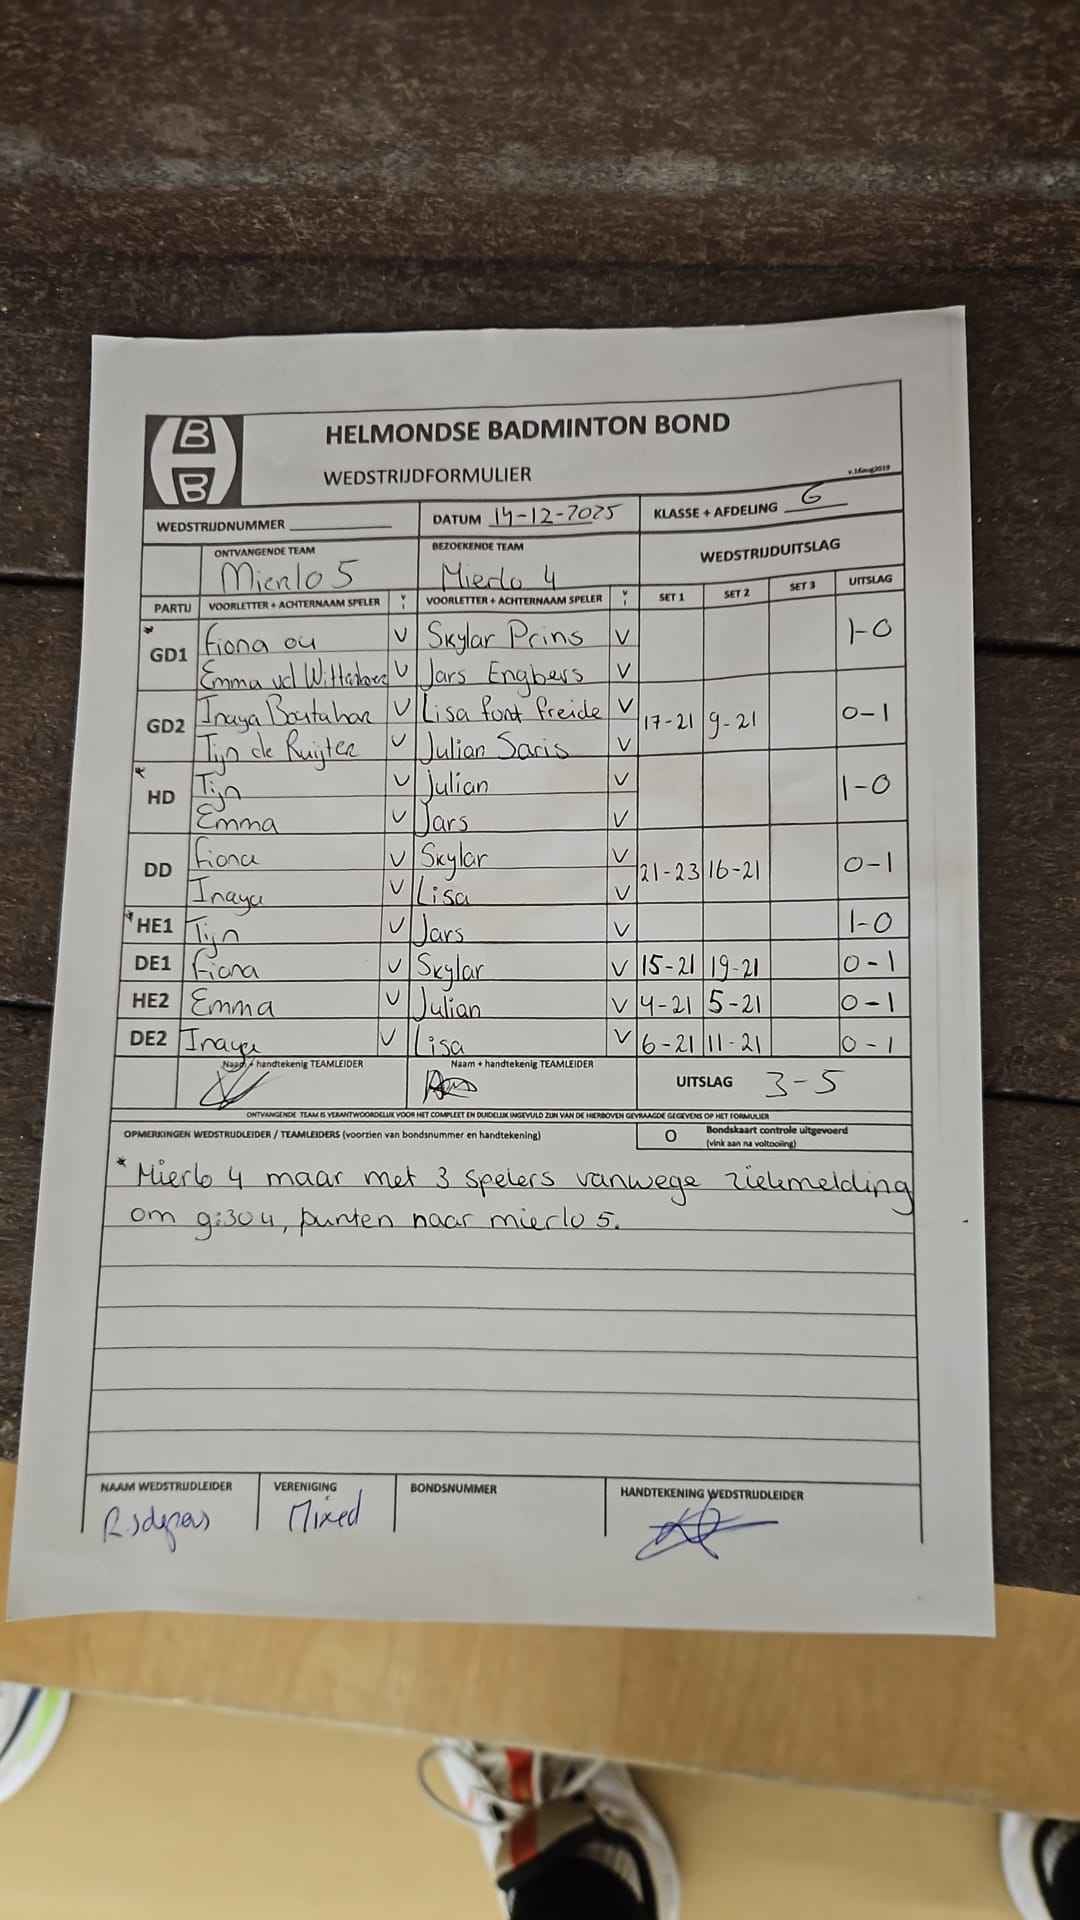 B
B
HELMONDSE BADMINTON BOND
WEDSTRIJDFORMULIER
v.16aug2019
WEDSTRIJDNUMMER
DATUM 14-12-2025
KLASSE + AFDELING 6
ONTVANGENDE TEAM
Mierlo 5
BEZOEKENDE TEAM
Mierlo 4
WEDSTRIJDUITSLAG
PARTIJ VOORLETTER + ACHTERNAAM SPELER V I VOORLETTER + ACHTERNAAM SPELER V I SET 1 SET 2 SET 3 UITSLAG
* GD1 Fiona ou V Skylar Prins V 1-0
Emma vd V Jars Engbers V
GD2 Inaya V Lisa font freide V 17-21 9-21 0-1
Tijn de Ruijter V Julian Saris V
* HD Tijn V Julian V 1-0
Emma V Jars V
DD Fiona V Skylar V 21-23 16-21 0-1
Inaya V Lisa V
* HE1 Tijn V Jars V 1-0
DE1 Fiona V Skylar V 15-21 19-21 0-1
HE2 Emma V Julian V 4-21 5-21 0-1
DE2 Inaya V Lisa V 6-21 11-21 0-1
Naam + handtekenig TEAMLEIDER
Naam + handtekenig TEAMLEIDER
UITSLAG 3-5
ONTVANGENDE TEAM IS VERANTWOORDELIJK VOOR HET COMPLEET EN DUIDELIJK INGEVULD ZIJN VAN DE HIERBOVEN GEVRAAGDE GEGEVENS OP HET FORMULIER
OPMERKINGEN WEDSTRIJDLEIDER / TEAMLEIDERS (voorzien van bondsnummer en handtekening)
O Bondskaart controle uitgevoerd
(vink aan na voltooiing)
* Mierlo 4 maar met 3 spelers vanwege ziekmelding
om 9:30u, punten naar mierlo 5.
NAAM WEDSTRIJDLEIDER
VERENIGING
Mixed
BONDSNUMMER
HANDTEKENING WEDSTRIJDLEIDER